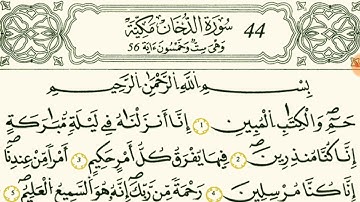 44 سُورَةُ الدُّخَانِ مَكِّيَّة
وَهِيَ سِتٌّ وَخَمْسُونَ ءَايَة 56
بِسْمِ اللَّهِ الرَّحْمَٰنِ الرَّحِيمِ
حمٓ وَالْكِتَٰبِ الْمُبِينِ ١ إِنَّا أَنزَلْنَٰهُ فِي لَيْلَةٍ مُّبَٰرَكَةٍ
إِنَّا كُنَّا مُنذِرِينَ ٢ فِيهَا يُفْرَقُ كُلُّ أَمْرٍ حَكِيمٍ ٣ أَمْرًا مِّنْ عِندِنَا
إِنَّا كُنَّا مُرْسِلِينَ ٤ رَحْمَةً مِّن رَّبِّكَ إِنَّهُ هُوَ السَّمِيعُ الْعَلِيمُ ٥